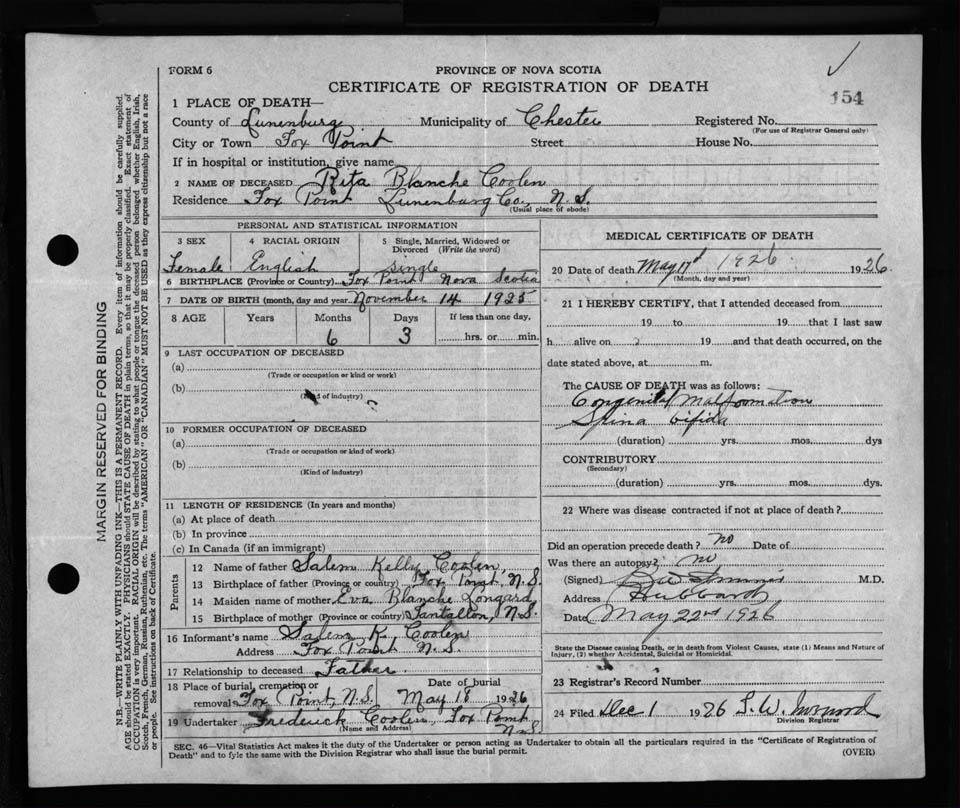 FORM 6
PROVINCE OF NOVA SCOTIA
CERTIFICATE OF REGISTRATION OF DEATH
154
1 PLACE OF DEATH—
County of Lunenburg Municipality of Chester Registered No.
(For use of Registrar General only)
City or Town Fox Point Street House No.
If in hospital or institution, give name
2 NAME OF DECEASED Rita Blanche Coolen
Residence Fox Point Lunenburg Co., N.S.
(Usual place of abode)
PERSONAL AND STATISTICAL INFORMATION
3 SEX 4 RACIAL ORIGIN 5 Single, Married, Widowed or Divorced (Write the word)
Female English Single
6 BIRTHPLACE (Province or Country) Fox Point Nova Scotia
7 DATE OF BIRTH (month, day and year) November 14 1925
8 AGE Years Months Days If less than one day,
6 3 hrs. or min.
9 LAST OCCUPATION OF DECEASED
(a)
(Trade or occupation or kind or work)
(b)
(Kind of industry)
10 FORMER OCCUPATION OF DECEASED
(a)
(Trade or occupation or kind of work)
(b)
(Kind of industry)
11 LENGTH OF RESIDENCE (In years and months)
(a) At place of death
(b) In province
(c) In Canada (if an immigrant)
Parents
12 Name of father Salem Kelly Coolen,
13 Birthplace of father (Province or country) Fox Point, N.S.
14 Maiden name of mother Eva Blanche Longard
15 Birthplace of mother (Province or country) Tantallon, N.S.
16 Informant's name Salem K. Coolen
Address Fox Point N.S.
17 Relationship to deceased Father
18 Place of burial, cremation or removal Fox Point, N.S. Date of burial May 18 1926
19 Undertaker Frederick Coolen, Fox Point N.S.
(Name and Address)
MEDICAL CERTIFICATE OF DEATH
20 Date of death May 17 1926 1926
(Month, day and year)
21 I HEREBY CERTIFY, that I attended deceased from
19 to 19 that I last saw
h alive on 19 and that death occurred, on the
date stated above, at m.
The CAUSE OF DEATH was as follows:
Congenital Malformation
Spina bifida
(duration) yrs. mos. dys
CONTRIBUTORY
(Secondary)
(duration) yrs. mos. dys.
22 Where was disease contracted if not at place of death?
Did an operation precede death? no Date of
Was there an autopsy? no
(Signed) M.D.
Address Hubbards
Date May 22nd 1926
State the Disease causing Death, or in death from Violent Causes, state (1) Means and Nature of
Injury, (2) whether Accidental, Suicidal or Homicidal.
23 Registrar's Record Number
24 Filed Dec 1 1926
Division Registrar
SEC. 46—Vital Statistics Act makes it the duty of the Undertaker or person acting as Undertaker to obtain all the particulars required in the "Certificate of Registration of
Death" and to fyle the same with the Division Registrar who shall issue the burial permit.
(OVER)
MARGIN RESERVED FOR BINDING
N.B.—WRITE PLAINLY WITH UNFADING INK—THIS IS A PERMANENT RECORD. Every item of information should be carefully supplied.
AGE should be stated EXACTLY. PHYSICIANS should STATE CAUSE OF DEATH in plain terms, so that it may be properly classified. Exact statement of
OCCUPATION is very important. RACIAL ORIGIN will be described by stating to what people or tongue the deceased person belonged whether English, Irish,
Scotch, French, German, Russian, Ruthenian, etc. The terms "AMERICAN" OR "CANADIAN" MUST NOT BE USED as they express citizenship but not a race
or people. See instructions on back of Certificate.